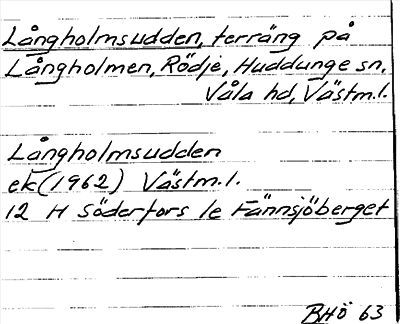 Långholmsudden, terräng på
Långholmen, Rödje, Huddunge sn,
Våla hd, Västm.l.
Långholmsudden
ek (1962) Västm.l.
12 H Söderfors 1e Fännsjöberget
BHÖ 63